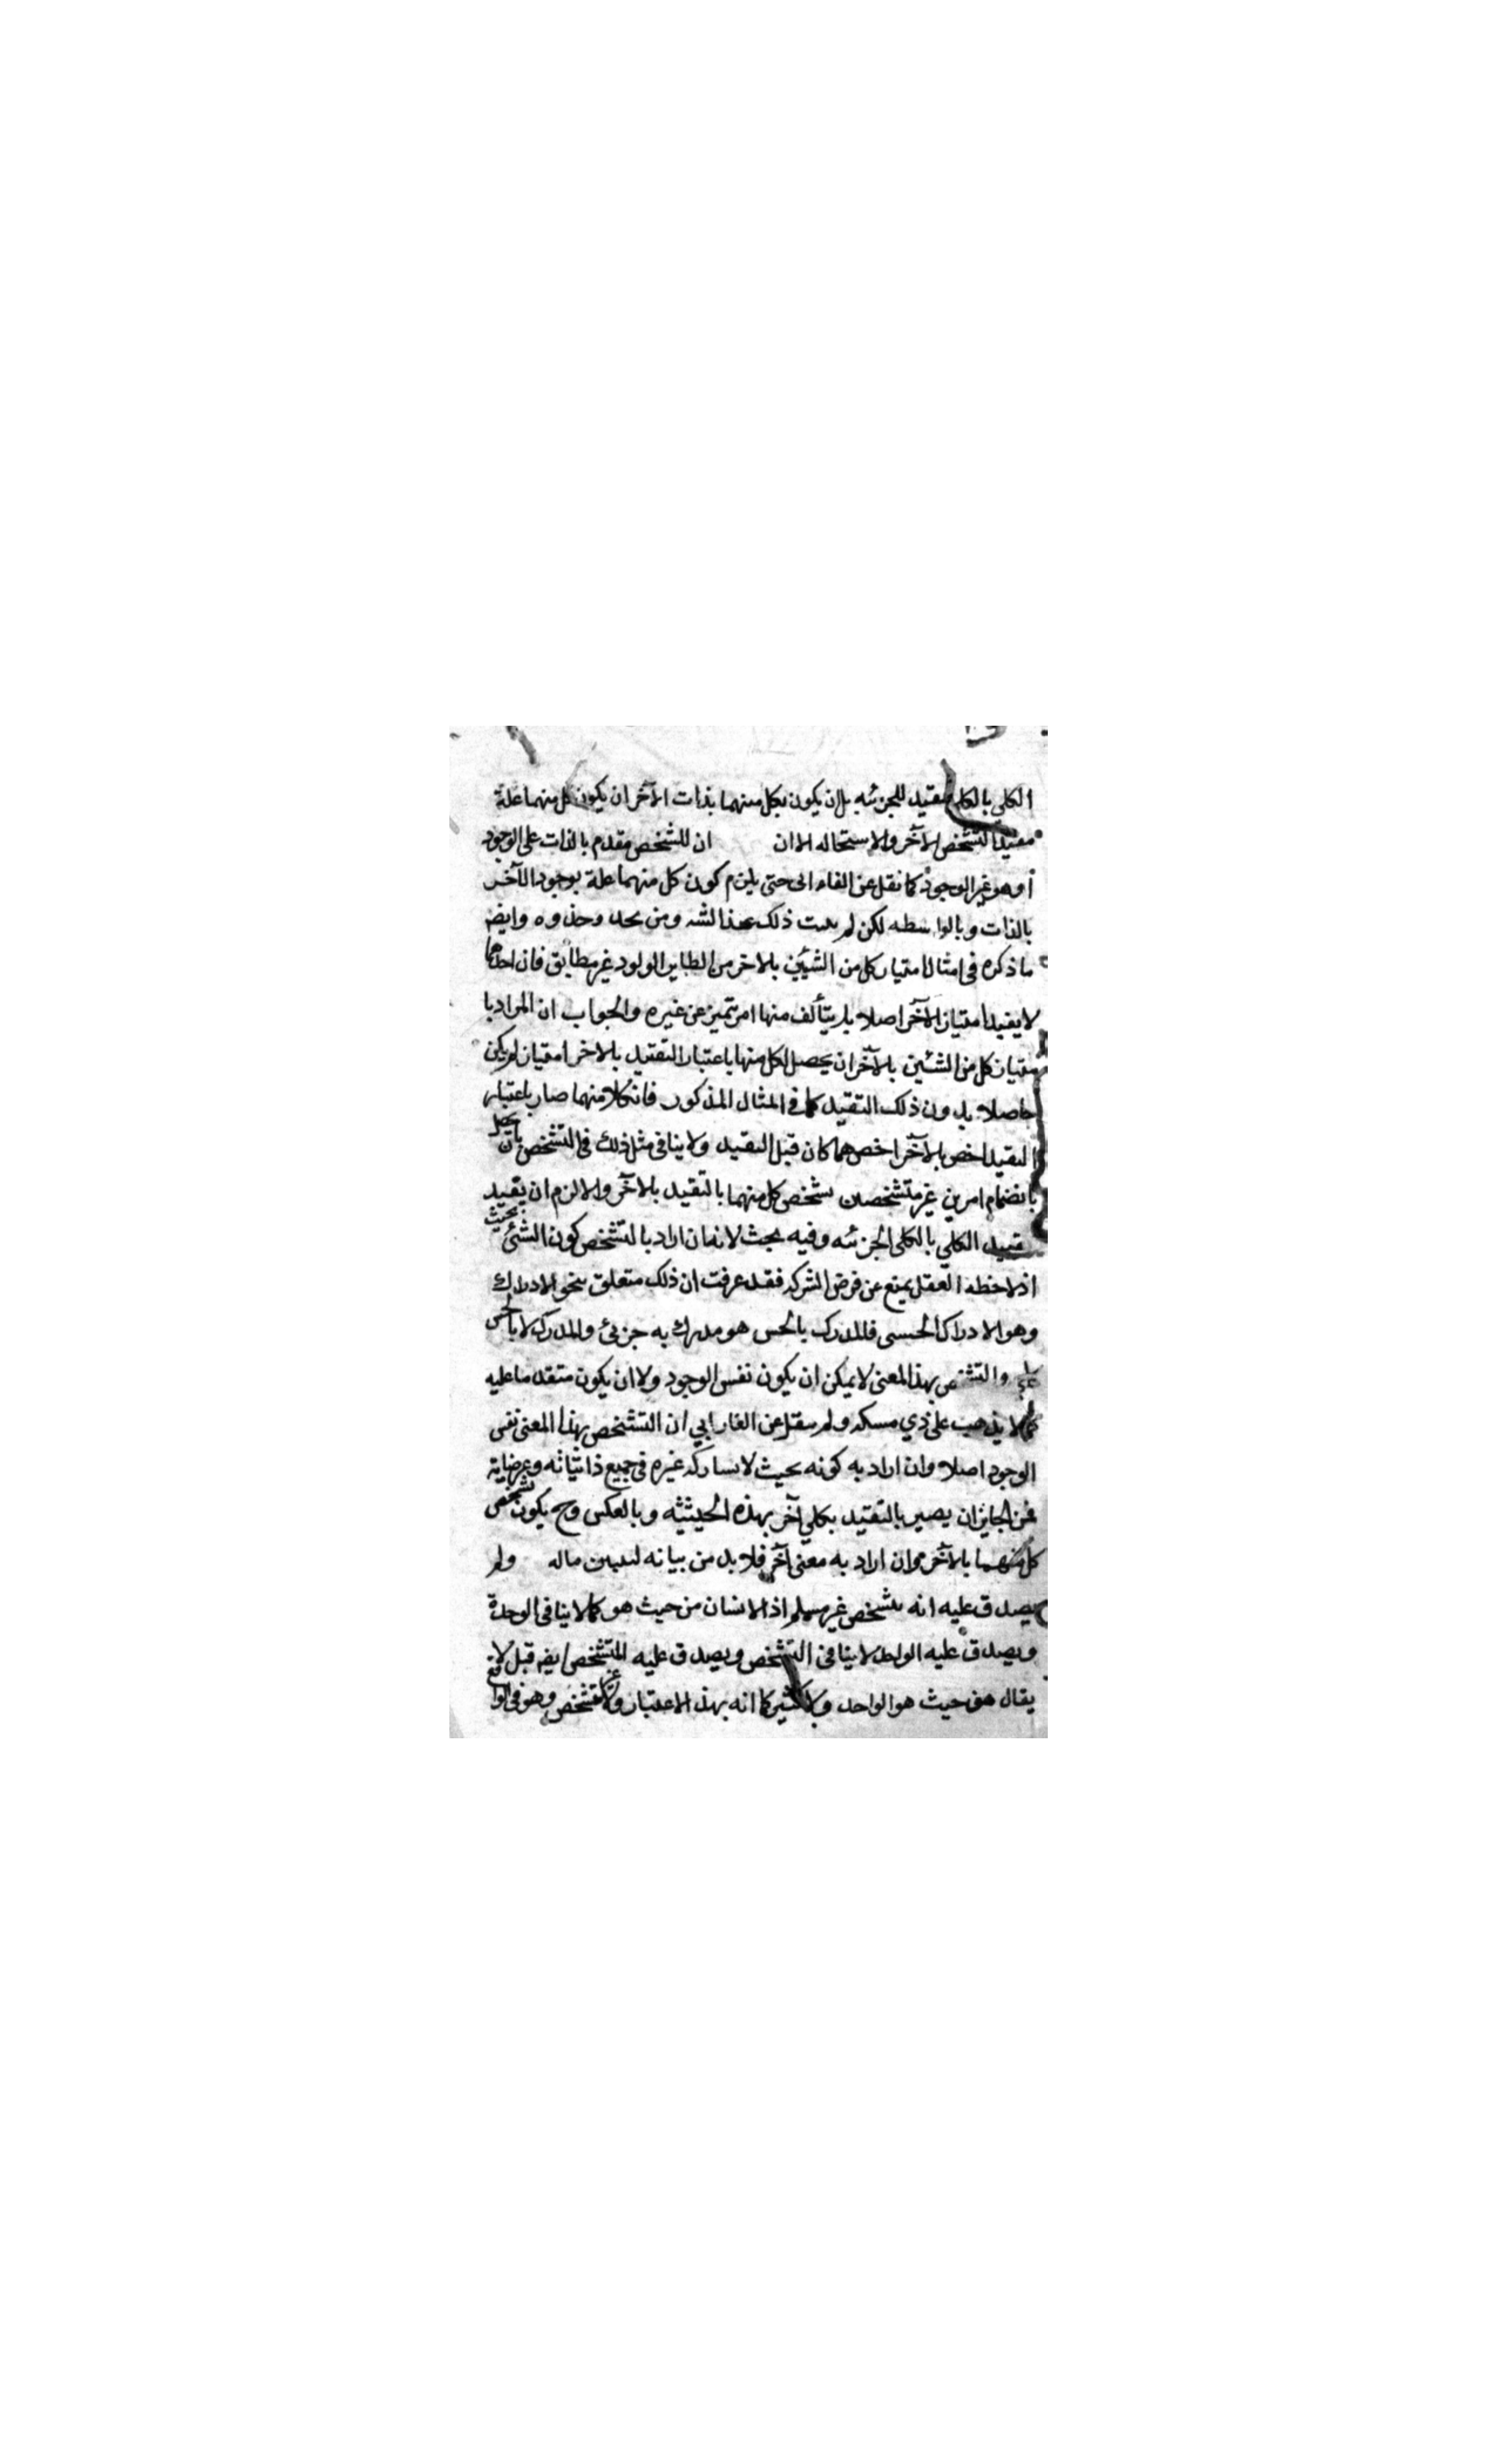 الكلي بالكلي مفيد للجزئيه بل ان يكون بكل منهما بذات الآخر ان يكون كل منهما علة
مفيدا لتشخص الآخر والاستحاله الا ان ان للشخص مقدم بالذات على الوجود
أو هو غير الوجود كما نقل عن الفارابى حتى يلزم كون كل منهما علة بوجود الآخر
بالذات وبالواسطه لكن لم ذلك ومن وحذوه وايضا
ما ذكره فى امثال امتياز كل من الشيئين بالاخر من الطاير الولود غير مطابق فان احدهما
لا يفيد امتياز الآخر اصلا بل يتألف منها امر يتميز عن غيره والجواب ان المراد با
متياز كل من الشئين بالآخر ان يحصل لكل منها باعتبار التقييد بالاخر امتياز لم يكن
حاصلا بدون ذلك التقيد كما فى المثال المذكور فان كلا منهما صار باعتبار
التقيد اخص بالآخر اخص مما كان قبل التقيد ولا ينافى مثل ذلك فى التشخص بان يحصل
بانضمام امرين غير متشخصين تشخص كل منهما بالتقيد بالاخر والا لزم ان يفيد
تقييد الكلي بالكلى الجزئيه وفيه بحث لانه ان اراد بالتشخص كون الشئ بحيث
اذا لاحظه العقل يمنع عن فرض الشركه فقد عرفت ان ذلك متعلق بنحو الادراك
وهو الادراك الحسى فالمدرك بالحس هو مدرك به جزئ والمدرك لا بالحس
كلي والتشخص بهذا المعنى لا يمكن ان يكون نفس الوجود ولا ان يكون متقدما عليه
كما لا يذهب على ذي مسكه ولم ينقل عن الفارابي ان التشخص بهذا المعنى نفس
الوجود اصلا وان اراد به كونه بحيث لا يشاركه غيره فى جميع ذاتياته وعرضياته
فمن الجايز ان يصير بالتقيد بكلي آخر بهذه الحيثيه وبالعكس وح يكون تشخص
كل منهما بالآخر وان اراد به معنى آخر فلا بد من بيانه ليتبين ماله ولم
يصدق عليه انه تشخص غير مسلم اذ الانسان من حيث هو كما لا ينافى الوحدة
ويصدق عليه الواحد لا ينافى التشخص ويصدق عليه المتشخص ايضا قبل لا
يقال هو من حيث هو الواحد ولا كثير كما انه بهذا الاعتبار ولا متشخص وهو فى الواقع